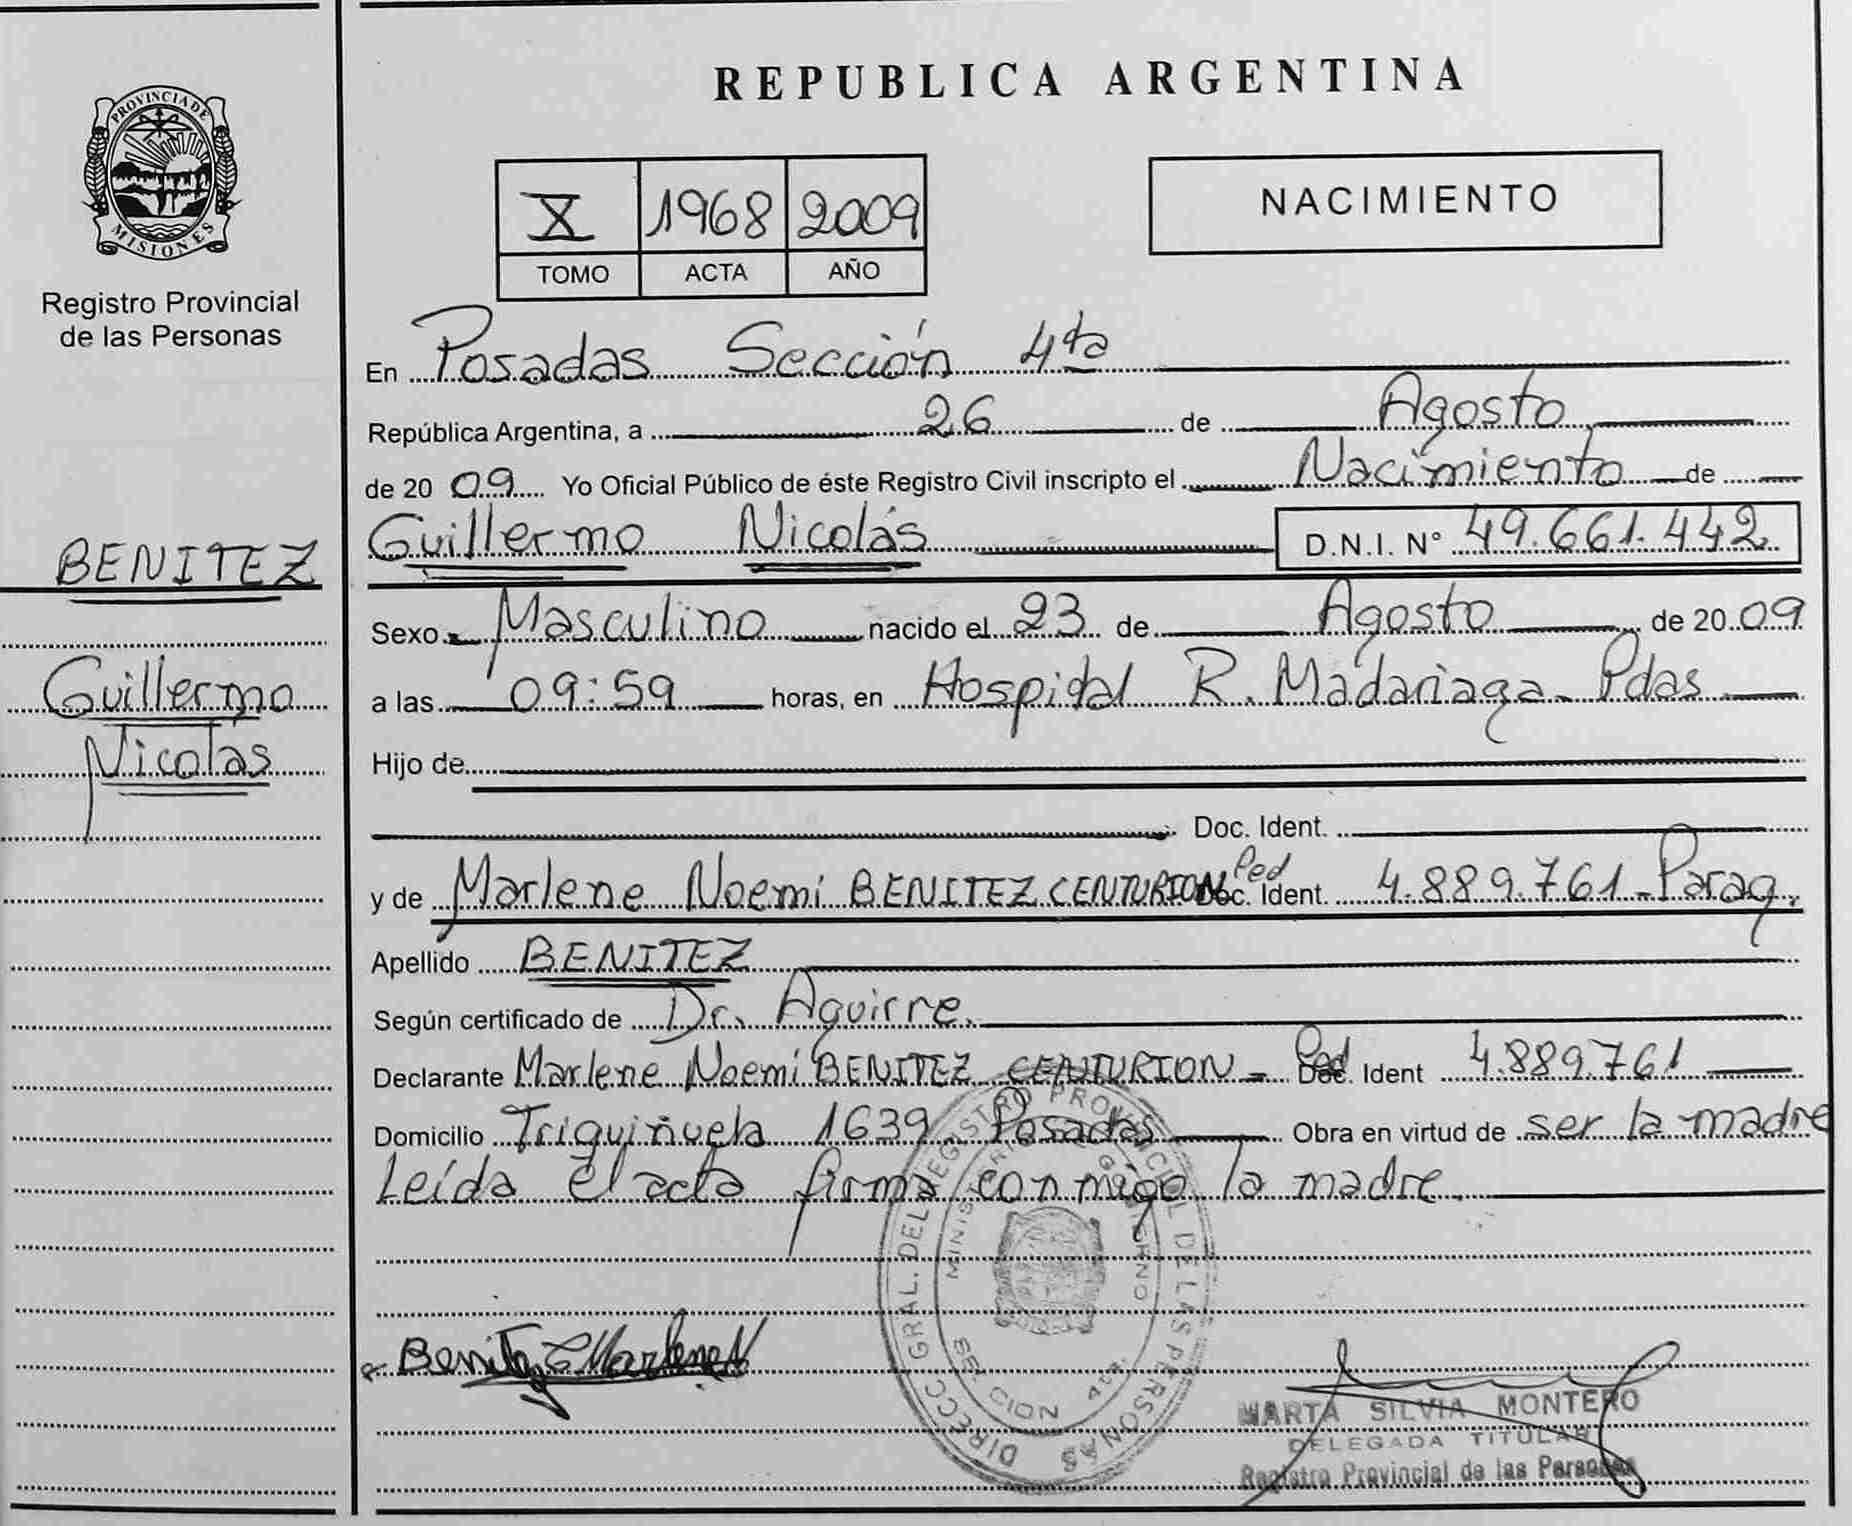 PROVINCIA DE
MISIONES
Registro Provincial
de las Personas
BENITEZ
Guillermo
Nicolás
REPUBLICA ARGENTINA
X 1968 2009
TOMO ACTA AÑO
NACIMIENTO
En Posadas Sección 4ta
República Argentina, a 26 de Agosto
de 20 09 Yo Oficial Público de éste Registro Civil inscripto el Nacimiento de
Guillermo Nicolás D.N.I. N° 49.661.442
Sexo Masculino nacido el 23 de Agosto de 20 09
a las 09:59 horas, en Hospital R. Madariaga - Pdas
Hijo de
Doc. Ident.
y de Marlene Noemi BENITEZ CENTURION Ced Doc. Ident. 4.889.761 - Parag.
Apellido BENITEZ
Según certificado de Dr. Aguirre.
Declarante Marlene Noemi BENITEZ CENTURION - Ced Doc. Ident 4.889.761
Domicilio Triquiñuela 1639 Posadas Obra en virtud de ser la madre
Leída el acta firma conmigo la madre.
DIRECC. GRAL. DEL REGISTRO PROVINCIAL DE LAS PERSONAS
MINISTERIO DE GOBIERNO
SECCION 4ta.
Benitez C Marlene N
MARTA SILVIA MONTERO
DELEGADA TITULAR
Registro Provincial de las Personas